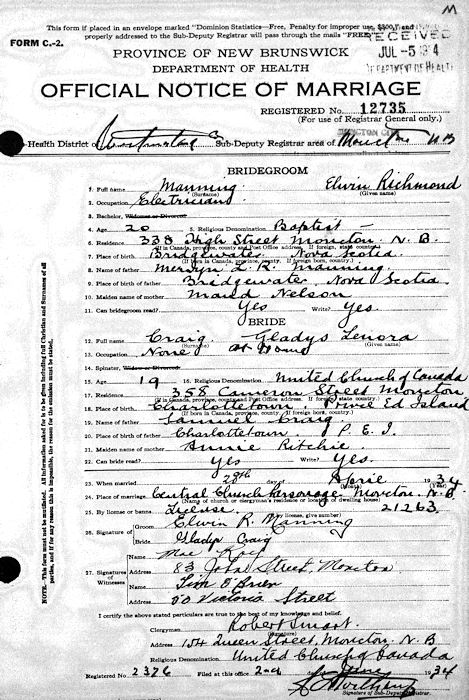 M
This form if placed in an envelope marked "Dominion Statistics—Free, Penalty for improper use, $300," and
properly addressed to the Sub-Deputy Registrar will pass through the mails "FREE"
RECEIVED
JUL -5 1934
DEPARTMENT OF HEALTH
FORM C.-2.
PROVINCE OF NEW BRUNSWICK
DEPARTMENT OF HEALTH
OFFICIAL NOTICE OF MARRIAGE
REGISTERED NO. 12735
(For use of Registrar General only.)
MONCTON CITY
Health District of Westmorland Sub-Deputy Registrar area of Moncton N B
BRIDEGROOM
1. Full name Manning Elwin Richmond
(Surname) (Given name)
2. Occupation Electrician
3. Bachelor, Widower or Divorced
4. Age 20 5. Religious Denomination Baptist
6. Residence 338 High Street Moncton N. B.
(If in Canada, province, county and Post Office address. If foreign, state country.)
7. Place of birth Bridgewater Nova Scotia
(If born in Canada, province, county. If foreign born, country.)
8. Name of father Mervyn L. R. Manning
9. Place of birth of father Bridgewater, Nova Scotia
10. Maiden name of mother Maud Nelson
11. Can bridegroom read? Yes Write? Yes.
BRIDE
12. Full name Craig Gladys Lenora
(Surname) (Given name)
13. Occupation None At Home
14. Spinster, Widow or Divorced
15. Age 19 16. Religious Denomination United Church of Canada
17. Residence 358 Cameron Street Moncton
(If in Canada, province, county and Post Office address. If foreign, state country.)
18. Place of birth Charlottetown, Prince Ed Island
(If born in Canada, province, county. If foreign born, country.)
19. Name of father Samuel Craig
20. Place of birth of father Charlottetown P. E. I.
21. Maiden name of mother Annie Ritchie
22. Can bride read? Yes Write? Yes.
23. When married 28th day of April 1934
24. Place of marriage Central Church Parsonage, Moncton, N. B.
(Name of church or clergyman's residence or location of dwelling house)
25. By license or banns License 21263
(If by license, give number)
26. Signature of
Groom Elwin R. Manning
Bride Gladys Craig
27. Signatures of Witnesses
Name Mae
Address 83 John Street Moncton
Name Tim O'Brien
Address 80 Victoria Street
I certify the above stated particulars are true to the best of my knowledge and belief.
Clergyman Robert Smart
(Signature)
Address 154 Queen Street, Moncton, N. B
Religious Denomination United Church of Canada
Registered No. 2326 Filed at this office 2nd June 1934
Signature of Sub-Deputy Registrar
NOTE.—This form must not be mutilated. All information asked for is to be given including full Christian and Surnames of all
parties, and if for any reason this is impossible, the reason for the omission must be stated.